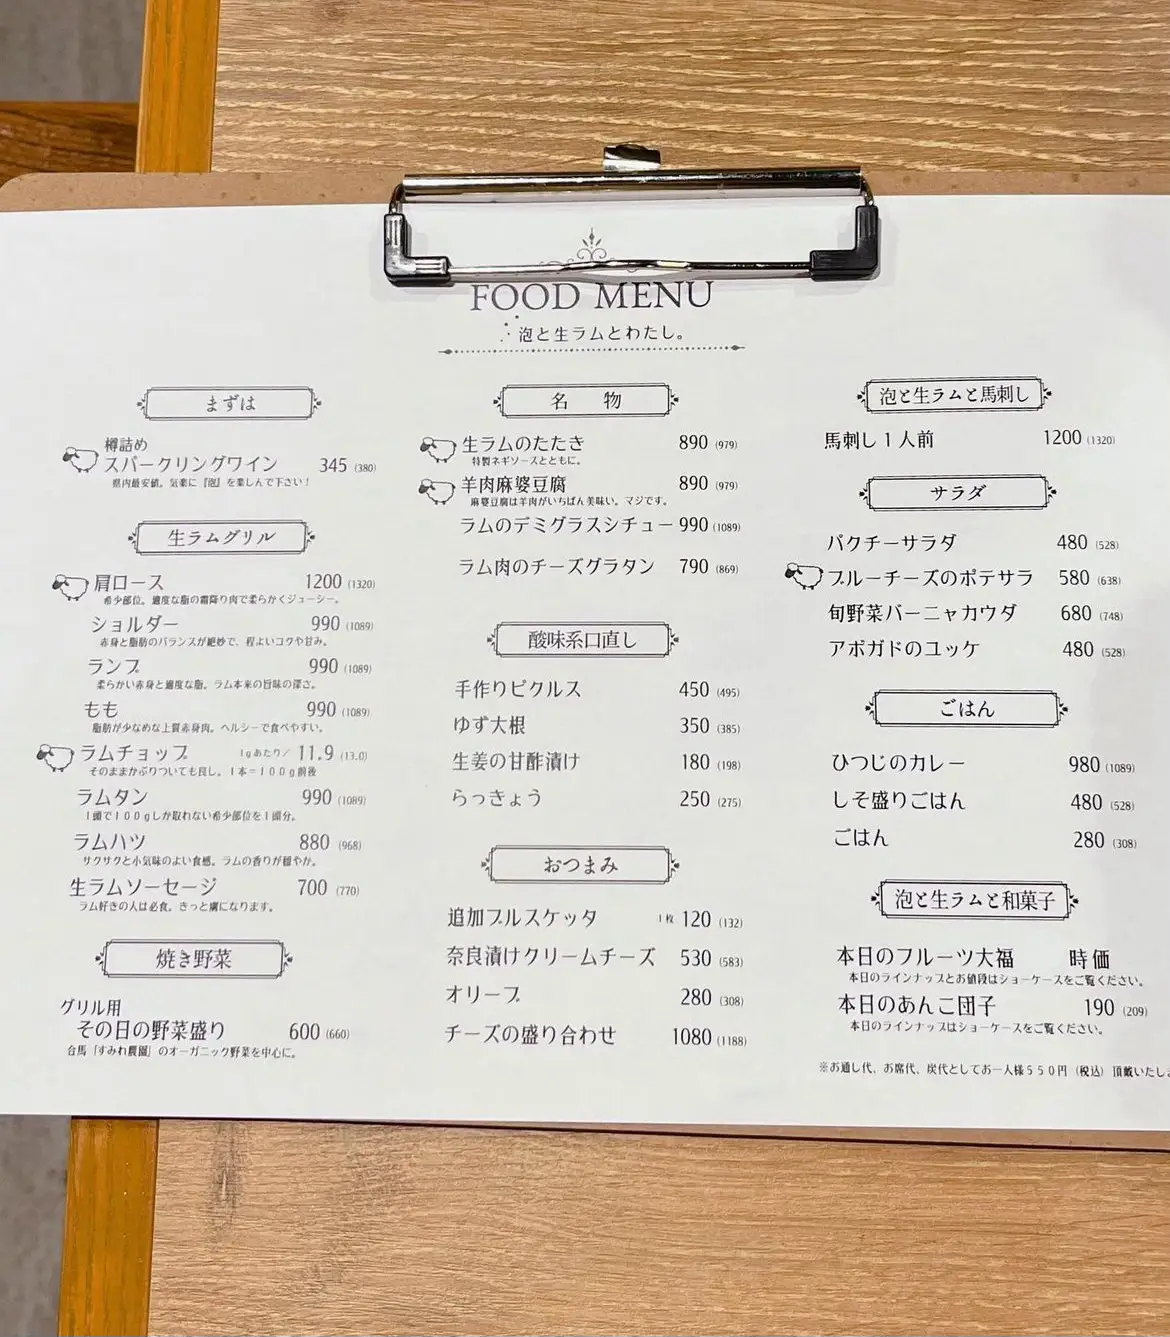 FOOD MENU
泡と生ラムとわたし。
まずは
樽詰め
スパークリングワイン 345 (380)
県内最安値。気楽に『泡』を楽しんで下さい!
生ラムグリル
肩ロース 1200 (1320)
希少部位。適度な脂の霜降り肉で柔らかくジューシー。
ショルダー 990 (1089)
赤身と脂肪のバランスが絶妙で、程よいコクや甘み。
ランプ 990 (1089)
柔らかい赤身と適度な脂。ラム本来の旨味の深さ。
もも 990 (1089)
脂肪が少なめな上質赤身肉。ヘルシーで食べやすい。
ラムチョップ 1gあたり/ 11.9 (13.0)
そのままかぶりついても良し。1本=100g前後
ラムタン 990 (1089)
1頭で100gしか取れない希少部位を1頭分。
ラムハツ 880 (968)
サクサクと小気味のよい食感。ラムの香りが穏やか。
生ラムソーセージ 700 (770)
ラム好きの人は必食。きっと虜になります。
焼き野菜
グリル用
その日の野菜盛り 600 (660)
台馬「すみれ農園」のオーガニック野菜を中心に。
名 物
生ラムのたたき 890 (979)
特製ネギソースとともに。
羊肉麻婆豆腐 890 (979)
麻婆豆腐は羊肉がいちばん美味い。マジです。
ラムのデミグラスシチュー 990 (1089)
ラム肉のチーズグラタン 790 (869)
酸味系口直し
手作りピクルス 450 (495)
ゆず大根 350 (385)
生姜の甘酢漬け 180 (198)
らっきょう 250 (275)
おつまみ
追加ブルスケッタ 1枚 120 (132)
奈良漬けクリームチーズ 530 (583)
オリーブ 280 (308)
チーズの盛り合わせ 1080 (1188)
泡と生ラムと馬刺し
馬刺し1人前 1200 (1320)
サラダ
パクチーサラダ 480 (528)
ブルーチーズのポテサラ 580 (638)
旬野菜バーニャカウダ 680 (748)
アボガドのユッケ 480 (528)
ごはん
ひつじのカレー 980 (1089)
しそ盛りごはん 480 (528)
ごはん 280 (308)
泡と生ラムと和菓子
本日のフルーツ大福 時価
本日のラインナップとお値段はショーケースをご覧ください。
本日のあんこ団子 190 (209)
本日のラインナップはショーケースをご覧ください。
※お通し代、お席代、炭代としてお一人様550円(税込)頂戴いたしま